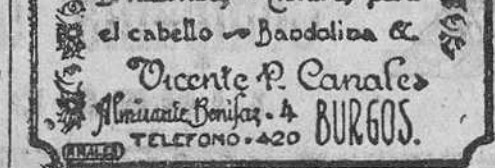 para
el cabello ~ Bandolina &.
Vicente P. Canales
Almirante Bonifaz. 4
BURGOS.
TELEFONO. 420
ANALES